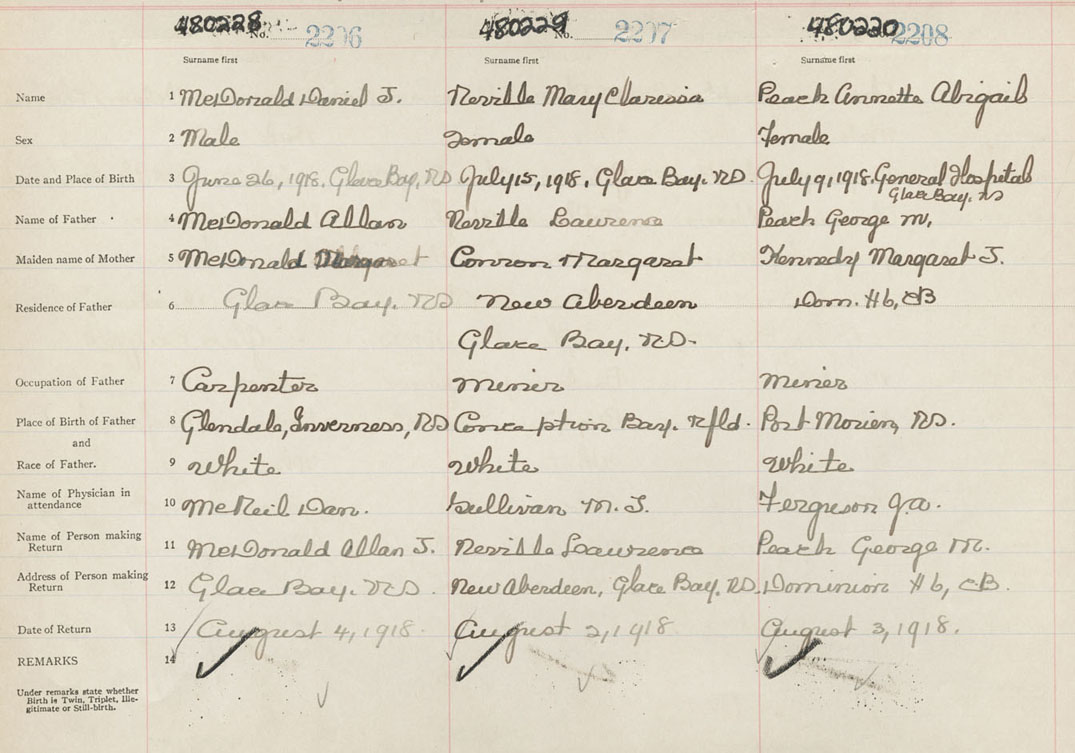 480228 No. 2206 480229 No. 2207 480220 2208
Surname first Surname first Surname first
Name 1 McDonald Daniel J. Neville Mary Claressa Peach Annetta Abigail
Sex 2 Male Female Female
Date and Place of Birth 3 June 26, 1918, Glace Bay, NS July 15, 1918. Glace Bay. NS July 9, 1918. General Hospital
Glace Bay. NS
Name of Father 4 McDonald Allan Neville Lawrence Peach George M.
Maiden name of Mother 5 McDonald Margaret Conron Margaret Kennedy Margaret J.
Residence of Father 6 Glace Bay. NS New Aberdeen Dom. #6, CB
Glace Bay. NS.
Occupation of Father 7 Carpenter Miner Miner
Place of Birth of Father 8 Glendale, Inverness, NS Conception Bay. Nfld. Port Morien, NS.
and
Race of Father. 9 White White White
Name of Physician in
attendance 10 McNeil Dan. Sullivan M. T. Ferguson J.A.
Name of Person making
Return 11 McDonald Allan J. Neville Lawrence Peach George M.
Address of Person making
Return 12 Glace Bay. NS. New Aberdeen, Glace Bay. NS. Dominion #6, CB.
Date of Return 13 August 4, 1918. August 2, 1918 August 3, 1918.
REMARKS 14
Under remarks state whether
Birth is Twin, Triplet, Ille-
gitimate or Still-birth.